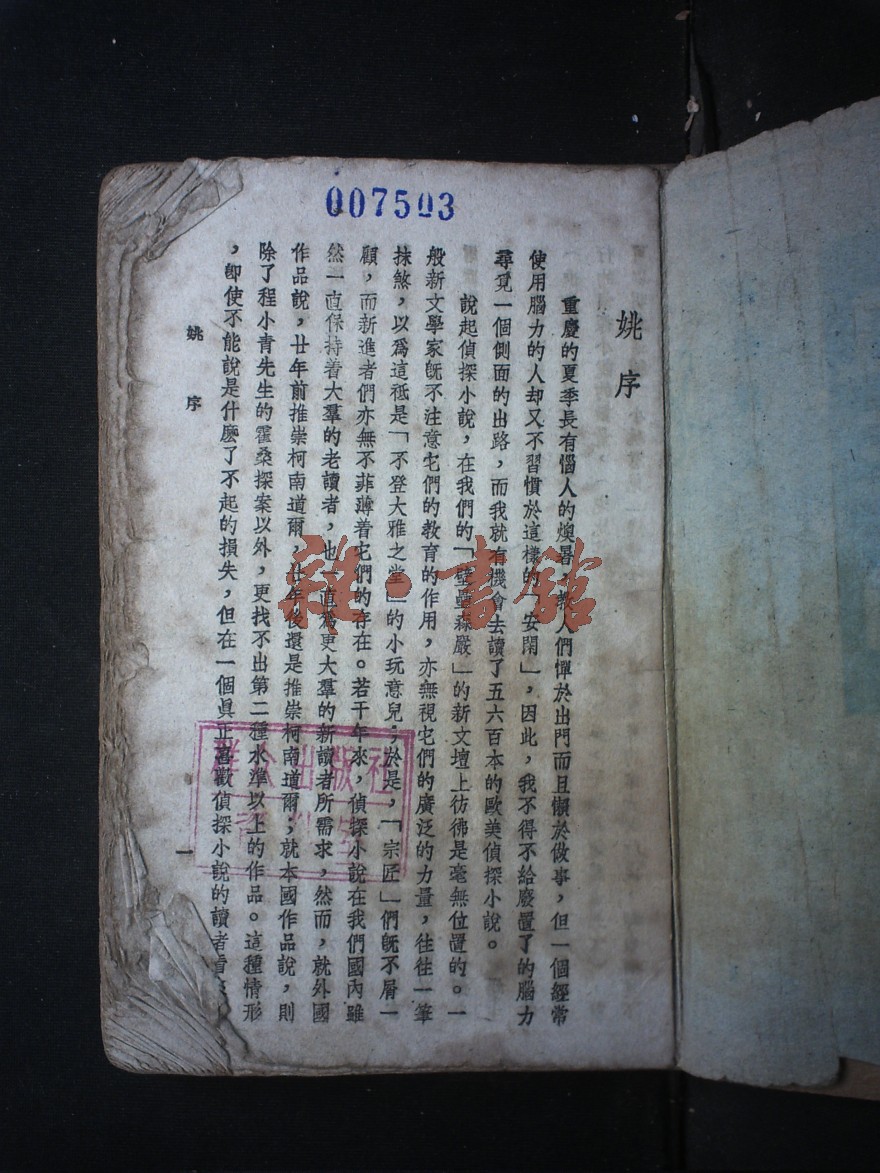 007503
姚序
重慶的夏季長有惱人的燠暑，教人們憚於出門而且懶於做事，但一個經常
使用腦力的人却又不習慣於這樣的「安閑」，因此，我不得不給廢置了的腦力
尋覓一個側面的出路，而我就有機會去讀了五六百本的歐美偵探小說。
說起偵探小說，在我們的「壁壘森嚴」的新文壇上彷彿是毫無位置的。一
般新文學家旣不注意它們的教育的作用，亦無視它們的廣泛的力量，往往一筆
抹煞，以爲這祗是「不登大雅之堂」的小玩意兒；於是，「宗匠」們旣不屑一
顧，而新進者們亦無不菲薄着它們的存在。若干年來，偵探小說在我們國內雖
然一直保持着大羣的老讀者，也一直爲更大羣的新讀者所需求，然而，就外國
作品說，廿年前推崇柯南道爾，廿年後還是推崇柯南道爾；就本國作品說，則
除了程小青先生的霍桑探案以外，更找不出第二種水準以上的作品。這種情形
，卽使不能說是什麽了不起的損失，但在一個眞正喜歡偵探小說的讀者看
姚序
一
群众出版社
雜·書館